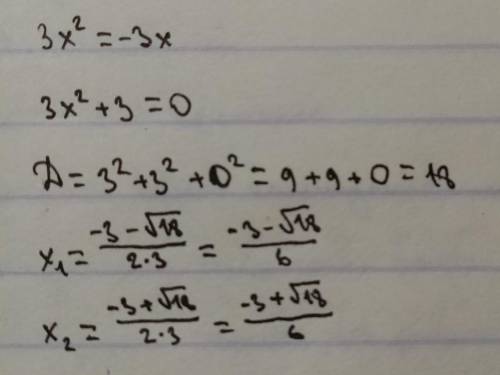 3x² = -3x
3x² + 3 = 0
D = 3² + 3² + 0² = 9 + 9 + 0 = 18
x₁ = (-3 - √18)/(2·3) = (-3 - √18)/6
x₂ = (-3 + √18)/(2·3) = (-3 + √18)/6